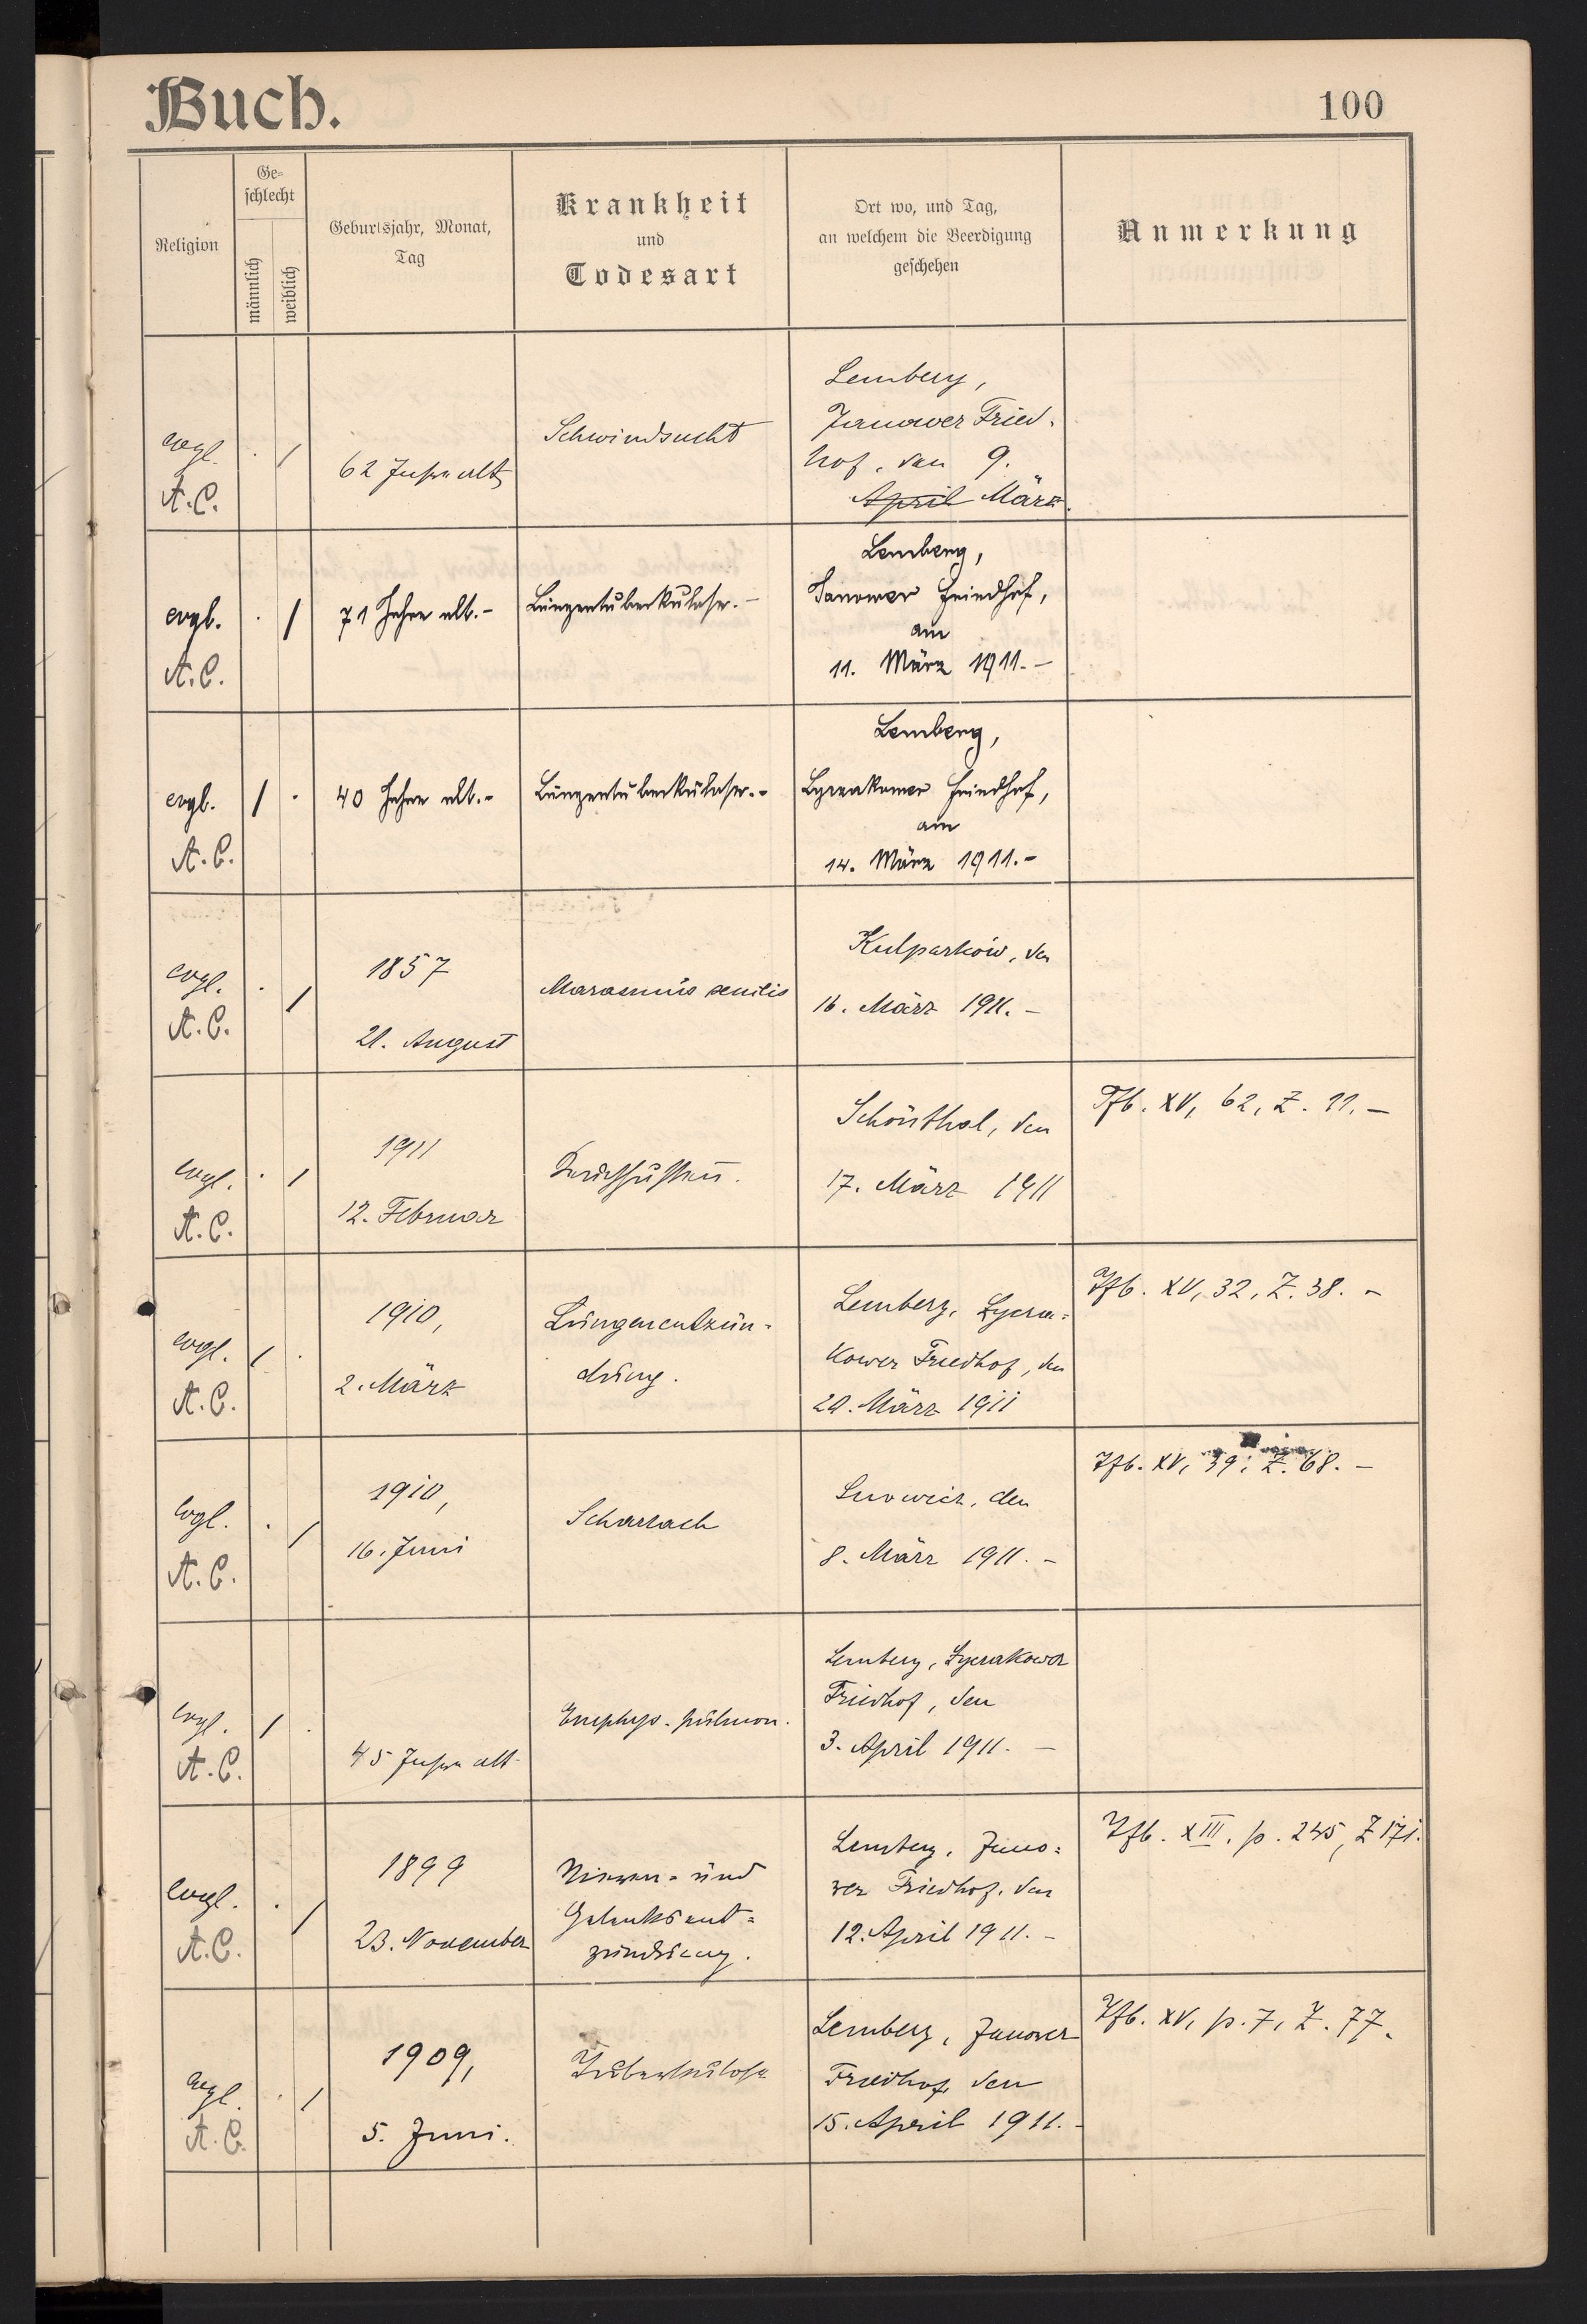 Buch.
100
Religion
Ge-
schlecht
männlich
weiblich
Geburtsjahr, Monat,
Tag
Krankheit
und
Todesart
Ort wo, und Tag,
an welchem die Beerdigung
geschehen
Anmerkung
evgl.
A.C.
/
62 Jahre alt
Schwindsucht
Lemberg,
Janower Fried-
hof, den 9.
April März.
evgl.
A.C.
/
71 Jahre alt.-
Lungentuberkulose.-
Lemberg,
Janower Friedhof,
am
11. März 1911.-
evgl.
A.C.
/
40 Jahre alt.-
Lungentuberkulose.-
Lemberg,
Lyczakower Friedhof,
am
14. März 1911.-
evgl.
A.C.
/
1857
21. August
Marasmus senilis
Kulparków, den
16. März 1911.-
evgl.
A.C.
/
1911
12. Februar
Keuchhusten.
Schönthal, den
17. März 1911
Tfb. XV, 62, Z. 11.-
evgl.
A.C.
/
1910,
2. März
Lungenentzün-
dung.
Lemberg, Lycza-
kower Friedhof, den
20. März 1911
Tfb. XV, 32, Z. 38.-
evgl.
A.C.
/
1910,
16. Juni
Scharlach
den
8. März 1911.-
Tfb. XV, 39, Z. 68.-
evgl.
A.C.
/
45 Jahre alt
Emphys. pulmon.
Lemberg, Lyczakower
Friedhof, den
3. April 1911.-
evgl.
A.C.
/
1899
23. November
Nieren- und
Gelenksent-
zündung.
Lemberg, Jano-
wer Friedhof, den
12. April 1911.-
Tfb. XIII. p. 245, Z 171.
evgl.
A.C.
/
1909,
5. Juni.
Tuberkulose
Lemberg, Janower
Friedhof, den
15. April 1911.-
Tfb. XV, p. 7, Z. 77.